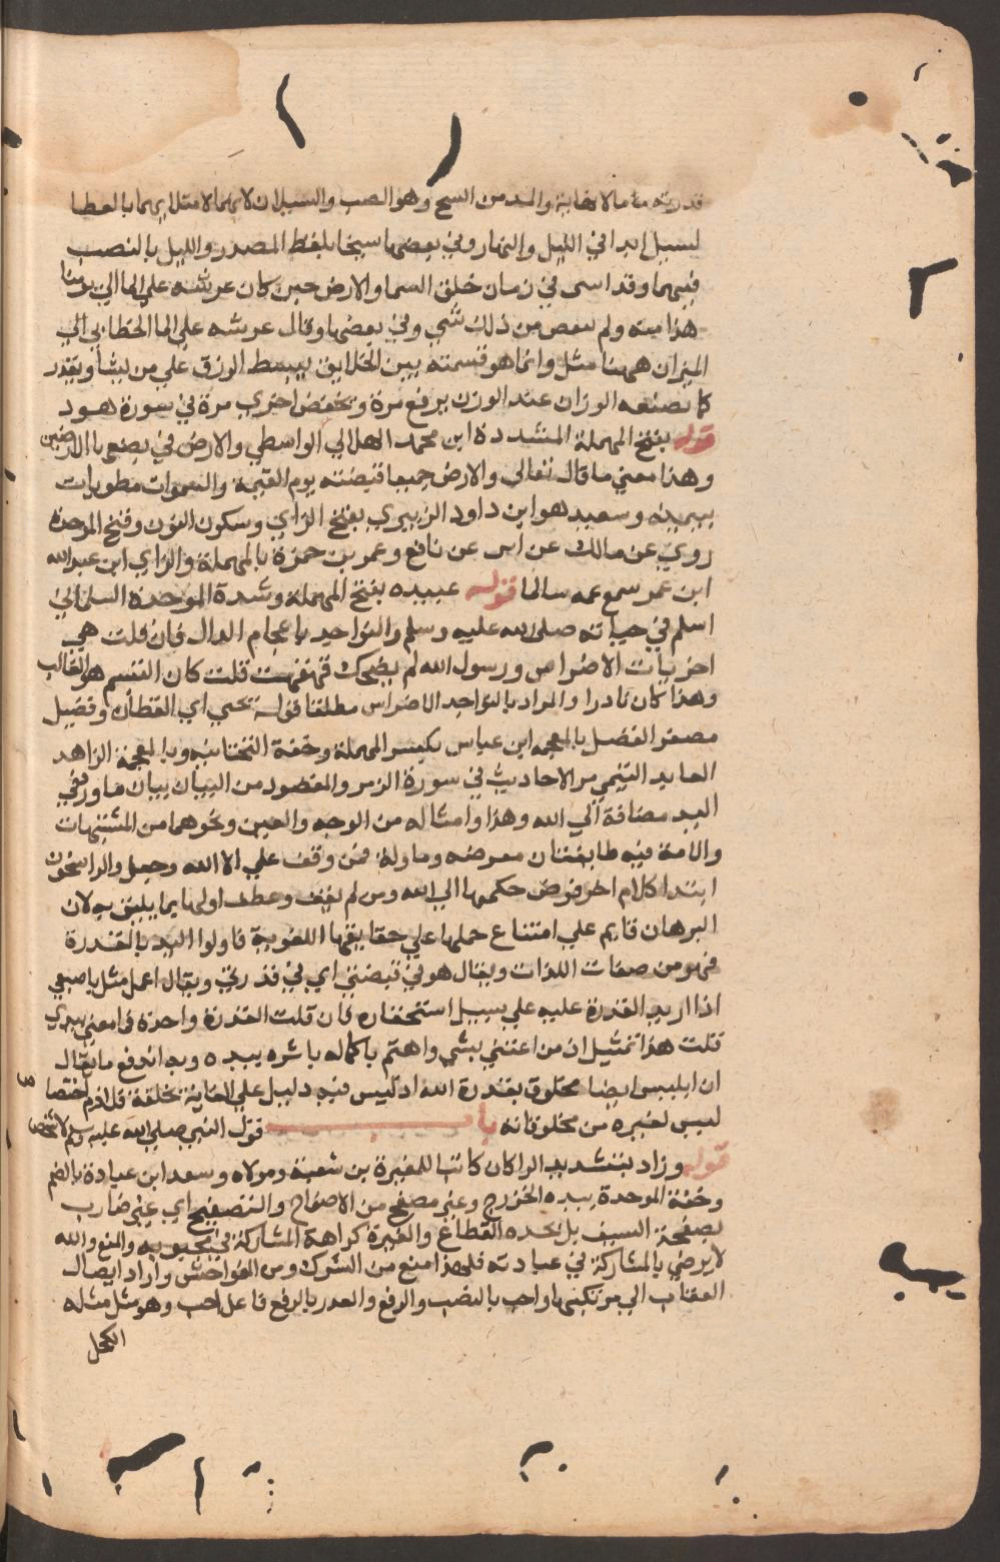 قدرته مما لا نهاية والمد من السح وهو الصب والسيلان لانهما لامتلائهما بالعطا
يسيل ابدا في الليل والنهار وفي بعضها سحا بلفظ المصدر والليل بالنصب
فيهما وقد اسى في زمان خلق السما والارض حين كان عرشه علي الما الي يومنا
هذا منه ولم ينقص من ذلك شي وفي بعضها وقال عرشه علي الما الخطابي الي
الميزان ههنا مثل وانما هو قسمته بين الخلايق يبسط الرزق علي من يشا ويقدر
كما يصنعه الوزان عند الوزن يرفع مرة ويخفض اخري مرة في سورة هود
قوله بفتح المهملة المشددة ابن محمد الهلالي الواسطي والارض في بعضها الارضين
وهذا معني ما قال تعالى والارض جميعا قبضته يوم القيمة والسموات مطويات
بيمينه وسعيد هو ابن داود الزبيري بفتح الزاي وسكون النون وفتح الموحدة
روي عن مالك عن انس عن نافع وعمر بن حمزة بالمهملة والزاي ابن عبد الله
ابن عمر سمع عمه سالما قوله عبيده بفتح المهملة وشدة الموحدة السلماني
اسلم في حياته صلى الله عليه وسلم والنواجد باعجام الدال فان قلت هي
اخريات الاضراس ورسول الله لم يضحك قهقهت قلت كان التبسم هو الغالب
وهذا كان نادرا والمراد بالنواجد الاضراس مطلقا قوله يحيي اي القطان وفضيل
مصغر الفضل بالمعجمه ابن عياس بكسر المهملة وخفة التختانيه وبالمعجمة الزاهد
العابد التيمي مر الاحاديث في سورة الزمر والمقصود من الباب بيان ما ورد في
اليد مضافة الي الله وهذا وامثاله من الوجه والعين ونحوهما من المتشبهات
والامة فيه طايفتان معوضه وماولة فمن وقف علي الا الله وجعل والراسخون
ابتدا كلام اخر فوض حكمهما الي الله ومن لم يقف وعطف اولها بما يليق به لان
البرهان قايم علي امتناع حملها علي حقايقها اللغوية فاولوا اليد بالقدرة
فهو من صفات اللذات ويقال هو في قبضتي اي في قدرتي ويقال اعمل مثل باصبعي
اذا اريد القدرة عليه علي سبيل استحقاره فان قلت القدرة واحدة فما معني بيدي
قلت هذا تمثيل ان من اعتني بشي واهتم باكماله باشره بيده وبه اندفع ما يقال
ان ابليس ايضا مخلوق بقدرة الله اد ليس فيه دليل علي العناية بخلقة فلادم اختصا ص
ليس لغيره من مخلوقاته باب قول النبي صلى الله عليه وسلم لا شخص
قوله وزاد بتشديد الرا كان كاتبا للمغيرة بن شعبة ومولاه وسعد ابن عبادة بالضم
وخفة الموحدة بيده الخزرج وغير مصفح من الاصفاح والتصفيح اي غير ضارب
بصفحة السيف بل بحده القطاع والغيرة كراهة المشاركة في محبوبه والمنع والله
لا يرضي بالمشاركة في عبادته فلهذا امنع من الشرك ومن الفواحش واراد ايصال
العقاب الي مرتكبها واحب بالنصب والرفع والعدر بالرفع فاعل احب وهو مثل مثله
الكحل